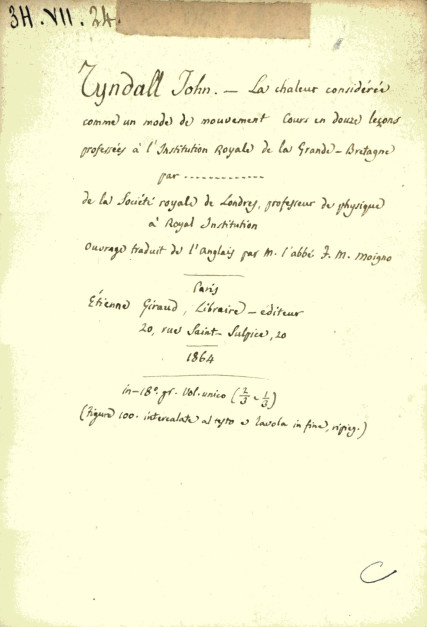 3H.VII.24.
Tyndall John. — La chaleur considérée
comme un mode de mouvement Cours en douze leçons
professées à l'Institution Royale de la Grande-Bretagne
par ............
de la Société royale de Londres, professeur de physique
à Royal Institution
Ouvrage traduit de l'Anglais par M. l'abbé F. M. Moigno
Paris
Étienne Giraud, Libraire-editeur
20, rue Saint-Sulpice, 20
1864
in-18°. gr. Vol. unico (2/3 1/3)
(Figure 100. intercalate al testo e Tavola in fine, ripieg.)
C